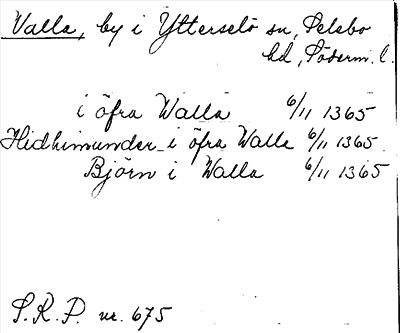 Valla, by i Ytterselö sn, Selebo
hd, Söderm. l.
i öfra Walla 6/11 1365
Hidhinmunder i öfra Walla 6/11 1365
Björn i Walla 6/11 1365
S.R.P. nr. 675